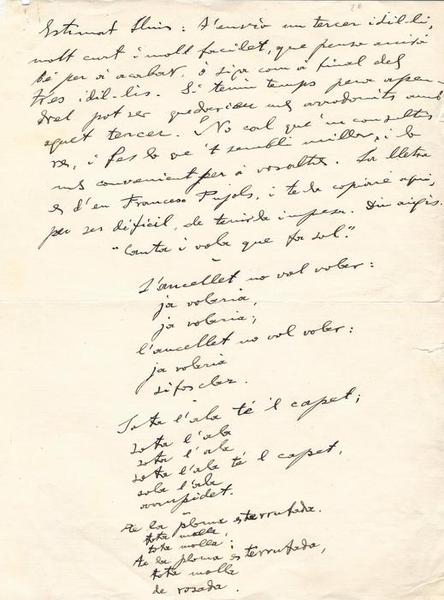 Estimat Lluis: T'envio un tercer idil·li,
molt curt i molt facilet, que penso anirà
bé per à acabar, ò siga com à final dels
tres idil·lis. Si teniu temps pera apen-
drel pot ser quedarieu mes arrodonits amb
aquet tercer. No cal que m consultis
res, i fes lo que 't sembli millor, i lo
mes convenient per à vosaltres. La lletra
es d'en Francesc Pujols, i te la copiaré aqui,
per ser dificil, de tenirla impresa. Diu aixis.
"Canta i vola que fa sol".
L'aucellet no vol volar:
ja volaria,
ja volaria;
l'aucellet no vol volar:
ja volaria
si fos clar.
Sota l'ala té 'l capet;
sota l'ala
sota l'ala
sota l'ala té 'l capet,
sota l'ala
arrupidet.
Te la ploma estarrufada.
tota molla,
tota molla;
te la ploma estarrufada,
tota molla
de rosada.